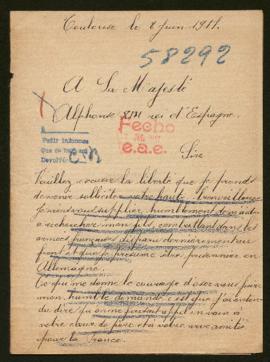 Toulouse le 8 Juin 1917.
58292
A Sa Majesté
Alphonse XIII roi d'Espagne.
Fecho
e.a.e.
Pedir informes
Sire
Veuillez excuser la liberté que je prends
de venir solliciter votre haute bienveillance
Je viens vous supplier humblement de m'aider
à rechercher mon fils, combattant dans les
armées françaises disparu dernièrement au
front et que je présume être prisonnier en
Allemagne.
Ce qui me donne le courage d'oser vous faire
mon humble demande c'est que j'ai entendu
dire qu'on ne faisait appel en vain à
votre cœur de père et à votre vive amitié
pour la France.